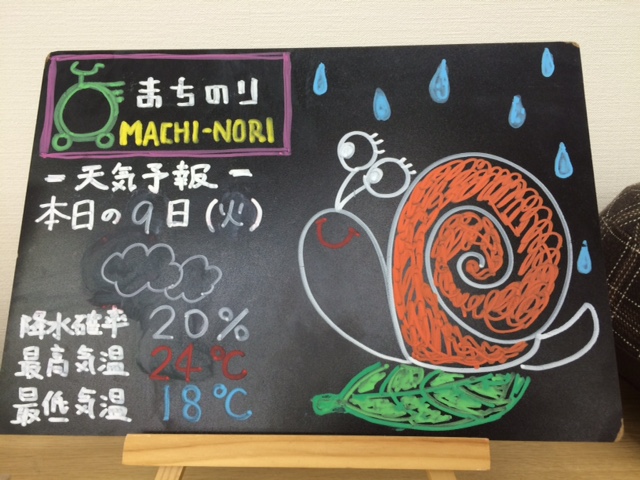 まちのり
MACHI-NORI
- 天気予報 -
本日の 9日(火)
降水確率 20%
最高気温 24℃
最低気温 18℃